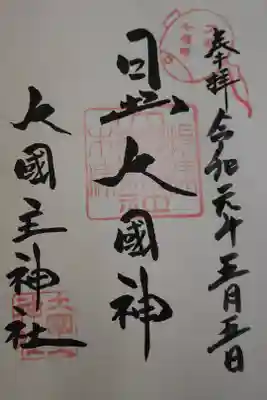 奉拝 令和元年五月五日
日出大國神
大國主神社